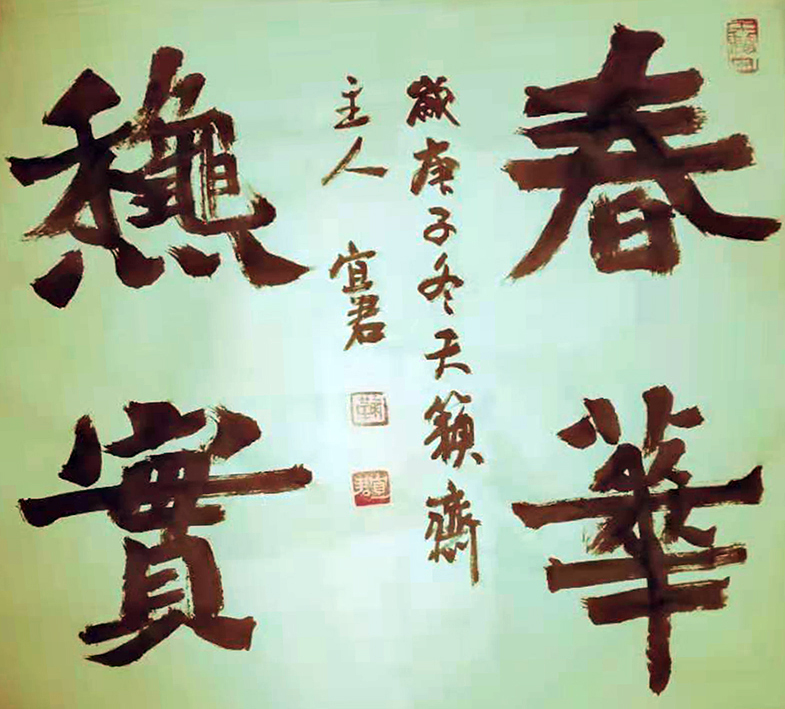 春華
穐實
歲庚子冬天籟齋
主人 宜君
宜君